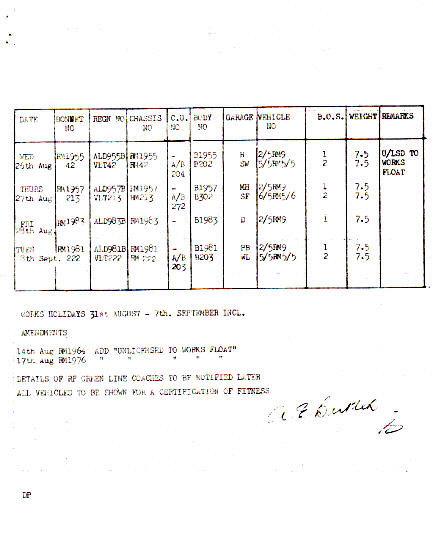 DATE BONNET NO REGN NO CHASSIS NO C.U. NO BODY NO GARAGE VEHICLE NO B.O.S. WEIGHT REMARKS
WED 26th Aug RM1955 ALD955B RM1955 - B1955 2/5RM9 1 7.5 U/LSD TO WORKS FLOAT
42 VLT42 RM42 A/B 204 SW 5/5RM5/5 2 7.5
THURS 27th Aug RM1957 ALD957B RM1957 - B1957 MH 2/5RM9 1 7.5
213 VLT213 RM213 A/B 272 B302 SF 6/5RM5/6 2 7.5
FRI 28th Aug RM1983 ALD983B RM1983 - B1983 2/5RM9 1 7.5
TUES 8th Sept. RM1981 ALD981B RM1981 - B1981 PB 2/5RM9 1 7.5
222 VLT222 RM 222 A/B 203 B203 WL 5/5RM5/5 2 7.5
WORKS HOLIDAYS 31st AUGUST - 7th. SEPTEMBER INCL.
AMENDMENTS
14th Aug RM1964 ADD "UNLICENSED TO WORKS FLOAT"
17th Aug RM1976 " " " " "
DETAILS OF RF GREEN LINE COACHES TO BE NOTIFIED LATER
ALL VEHICLES TO BE SHOWN FOR A CERTIFICATION OF FITNESS
DP